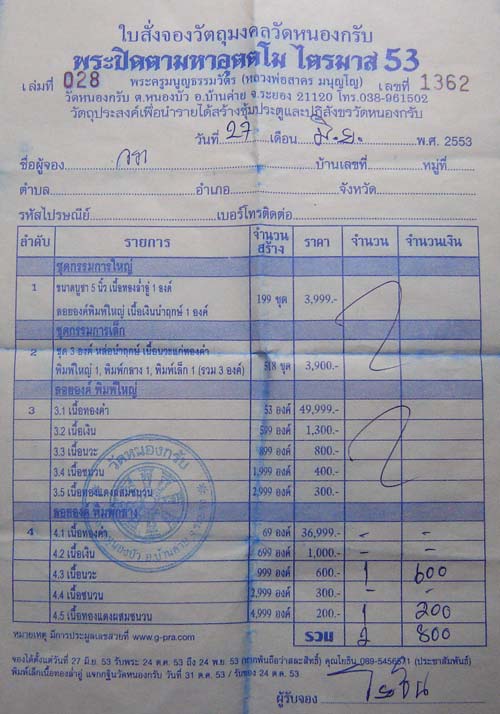 ใบสั่งจองวัตถุมงคลวัดหนองกรับ
พระปิดตามหาอุตตโม ไตรมาส 53
เล่มที่ 028 พระครูมนูญธรรมวัตร (หลวงพ่อสาคร มนุญโญ) เลขที่ 1362
วัดหนองกรับ ต.หนองบัว อ.บ้านค่าย จ.ระยอง 21120 โทร.038-961502
วัตถุประสงค์เพื่อนำรายได้สร้างซุ้มประตูและปฏิสังขรวัดหนองกรับ
วันที่ 27 เดือน มิ.ย. พ.ศ. 2553
ชื่อผู้จอง บ้านเลขที่ หมู่ที่
ตำบล อำเภอ จังหวัด
รหัสไปรษณีย์ เบอร์โทรติดต่อ
ลำดับ รายการ จำนวนสร้าง ราคา จำนวน จำนวนเงิน
ชุดกรรมการใหญ่
1 ขนาดบูชา 5 นิ้ว เนื้อทองล่ำอู่ 1 องค์
ลอยองค์พิมพ์ใหญ่ เนื้อเงินนำฤกษ์ 1 องค์ 199 ชุด 3,999.-
ชุดกรรมการเล็ก
2 ชุด 3 องค์ หล่อนำฤกษ์ เนื้อนวะแก่ทองคำ
พิมพ์ใหญ่ 1, พิมพ์กลาง 1, พิมพ์เล็ก 1 (รวม 3 องค์) 518 ชุด 3,900.-
ลอยองค์ พิมพ์ใหญ่
3 3.1 เนื้อทองคำ 53 องค์ 49,999.-
3.2 เนื้อเงิน 599 องค์ 1,300.-
3.3 เนื้อนวะ 899 องค์ 800.-
3.4 เนื้อชนวน 1,999 องค์ 400.-
3.5 เนื้อทองแดงผสมชนวน 2,999 องค์ 300.-
ลอยองค์ พิมพ์กลาง
4 4.1 เนื้อทองคำ 69 องค์ 36,999.- - -
4.2 เนื้อเงิน 699 องค์ 1,000.- - -
4.3 เนื้อนวะ 999 องค์ 600.- 1 600
4.4 เนื้อชนวน 2,999 องค์ 300.- - -
4.5 เนื้อทองแดงผสมชนวน 4,999 องค์ 200.- 1 200
หมายเหตุ มีการประมูลเลขสวยที่ www.g-pra.com รวม 2 800
จองได้ตั้งแต่วันที่ 27 มิ.ย. 53 รับพระ 24 ต.ค. 53 ถึง 24 พ.ย. 53 คุณโยธิน (ประชาสัมพันธ์)
พิมพ์เล็กเนื้อทองล่ำอู่ แจกกฐินวัดหนองกรับ วันที่ 31 ต.ค. 53 24 ต.ค. 53
ผู้รับจอง โยธิน
วัดหนองกรับ